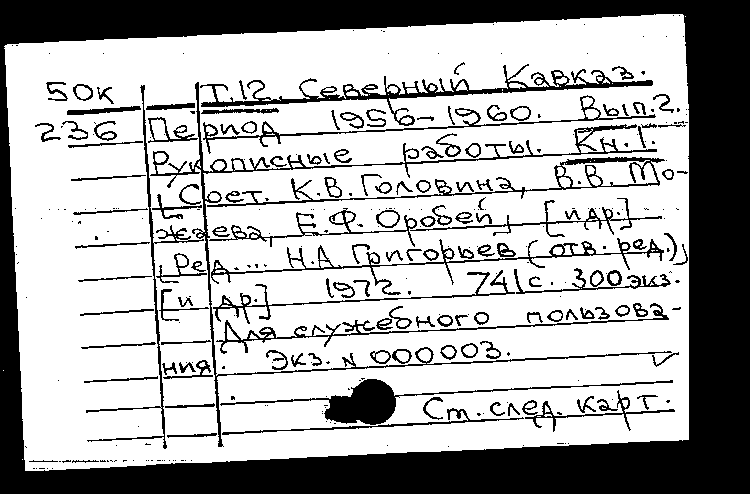 50к Т.12. Северный Кавказ.
236 Период 1956-1960. Вып.2.
Рукописные работы. Кн.1.
[Сост. К.В. Головина, В.В. Мо-
жаева, Е.Ф. Оробей, [и др.]
[Ред.... Н.А. Григорьев (отв. ред.),
[и др.] 1972. 741с. 300экз.
Для служебного пользова-
ния. Экз. N 000003.
См. след. карт.